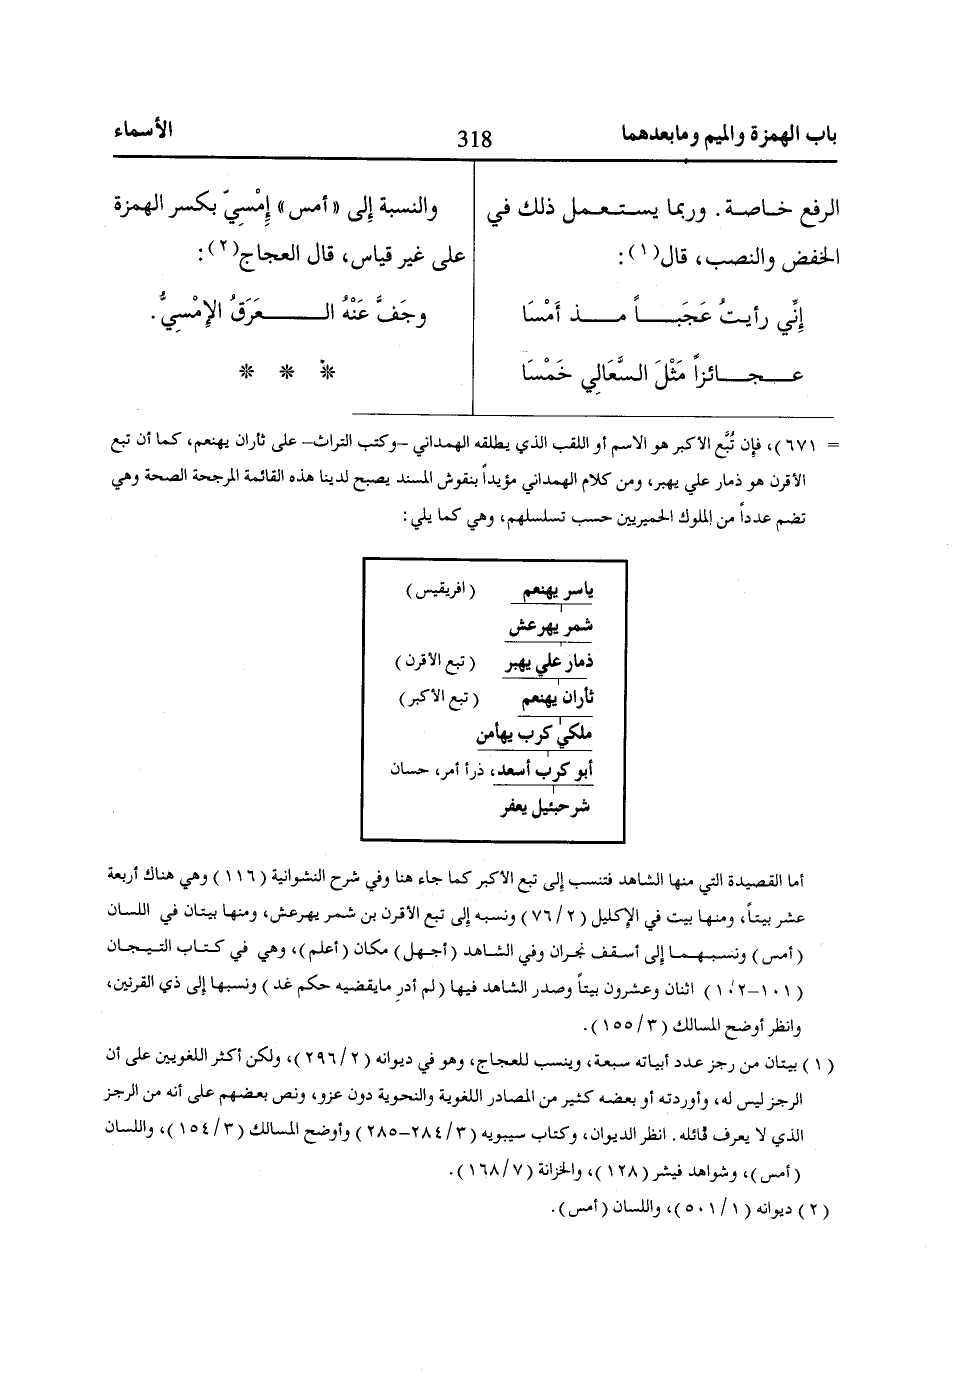 باب الهمزة والميم ومابعدهما
318
الأسماء
الرفع خاصة. وربما يستعمل ذلك في
الخفض والنصب، قال(١):
إنِّي رأيتُ عَجَبـاً مـذ أَمْسَا
عـجـائزاً مَثْلَ السَّعَالِي خَمْسَا
والنسبة إلى «أمس» إِمْسِيّ بكسر الهمزة
على غير قياس، قال العجاج(٢):
وجَفَّ عَنْهُ الـعَرَقُ الإِمْسِيُّ.
* * *
= ٦٧١)، فإن تُبَّع الأكبر هو الاسم أو اللقب الذي يطلقه الهمداني -وكتب التراث- على ثأران يهنعم، كما أن تبع
الأقرن هو ذمار علي يهبر، ومن كلام الهمداني مؤيداً بنقوش المسند يصبح لدينا هذه القائمة المرجحة الصحة وهي
تضم عدداً من الملوك الحميريين حسب تسلسلهم، وهي كما يلي:
ياسر يهنعم (افريقيس)
شمر يهرعش
ذمار علي يهبر (تبع الأقرن)
ثأران يهنعم (تبع الأكبر)
ملكي كرب يهأمن
أبو كرب أسعد، ذرأ أمر، حسان
شرحبئيل يعفر
أما القصيدة التي منها الشاهد فتنسب إلى تبع الأكبر كما جاء هنا وفي شرح النشوانية (١١٦) وهي هناك أربعة
عشر بيتاً، ومنها بيت في الإكليل (٧٦/٢) ونسبه إلى تبع الأقرن بن شمر يهرعش، ومنها بيتان في اللسان
(أمس) ونسبهما إلى أسقف نجران وفي الشاهد (أجهل) مكان (أعلم)، وهي في كتاب التيجان
(١٠١-١٠٢) اثنان وعشرون بيتاً وصدر الشاهد فيها (لم أدرِ مايقضيه حكم غد) ونسبها إلى ذي القرنين،
وانظر أوضح المسالك (١٥٥/٣).
(١) بيتان من رجز عدد أبياته سبعة، وينسب للعجاج، وهو في ديوانه (٢٩٦/٢)، ولكن أكثر اللغويين على أن
الرجز ليس له، وأوردته أو بعضه كثير من المصادر اللغوية والنحوية دون عزو، ونص بعضهم على أنه من الرجز
الذي لا يعرف قائله. انظر الديوان، وكتاب سيبويه (٢٨٤/٣-٢٨٥) وأوضح المسالك (١٥٤/٣)، واللسان
(أمس)، وشواهد فيشر (١٢٨)، والخزانة (١٦٨/٧).
(٢) ديوانه (٥٠١/١)، واللسان (أمس).